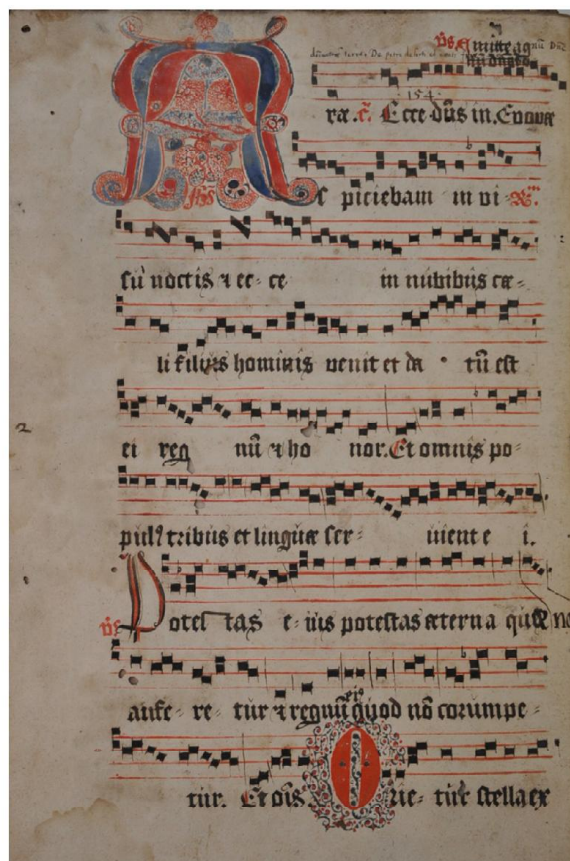 v̄s. Emitte agnū Dn̄e
154.
ræ. c̄. Ecce dn̄s in. Evovæ
Aspiciebam in vi-
sū noctis & ecce in nubibus cæ-
li filius hominis venit et da tū est
ei reg nū & ho nor. Et omnis po
pul9 tribus et linguæ ser- uient e i.
v̄s Potes tas e-ius potestas æterna quæ nō
aufe- re- tur & regnū eius quod nō corumpe-
tur. Et oīs. Orie- tur stella ex
2